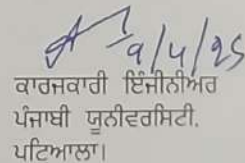 9/4/25
ਕਾਰਜਕਾਰੀ ਇੰਜੀਨੀਅਰ
ਪੰਜਾਬੀ ਯੂਨੀਵਰਸਿਟੀ,
ਪਟਿਆਲਾ।